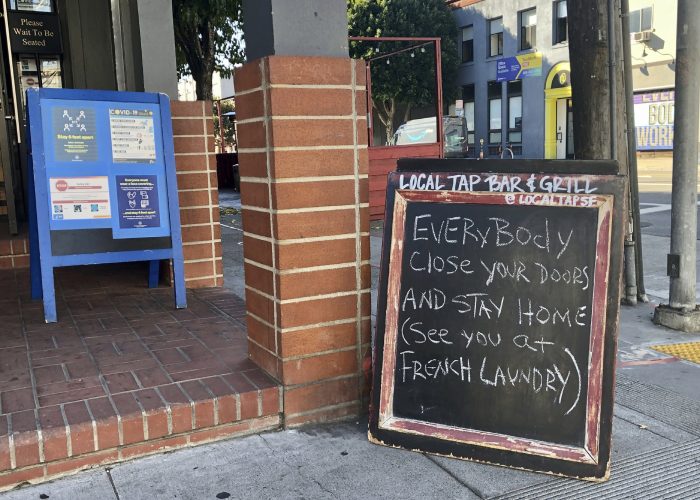 Please
Wait To Be
Seated
COVID-19
Stay 6 feet apart
STOP
LOCAL TAP BAR & GRILL
@ LOCALTAPSF
EVERYBODY
Close YOUR DOORS
AND STAY HOME
(See you at
FRENCH LAUNDRY)
BODY
WORK